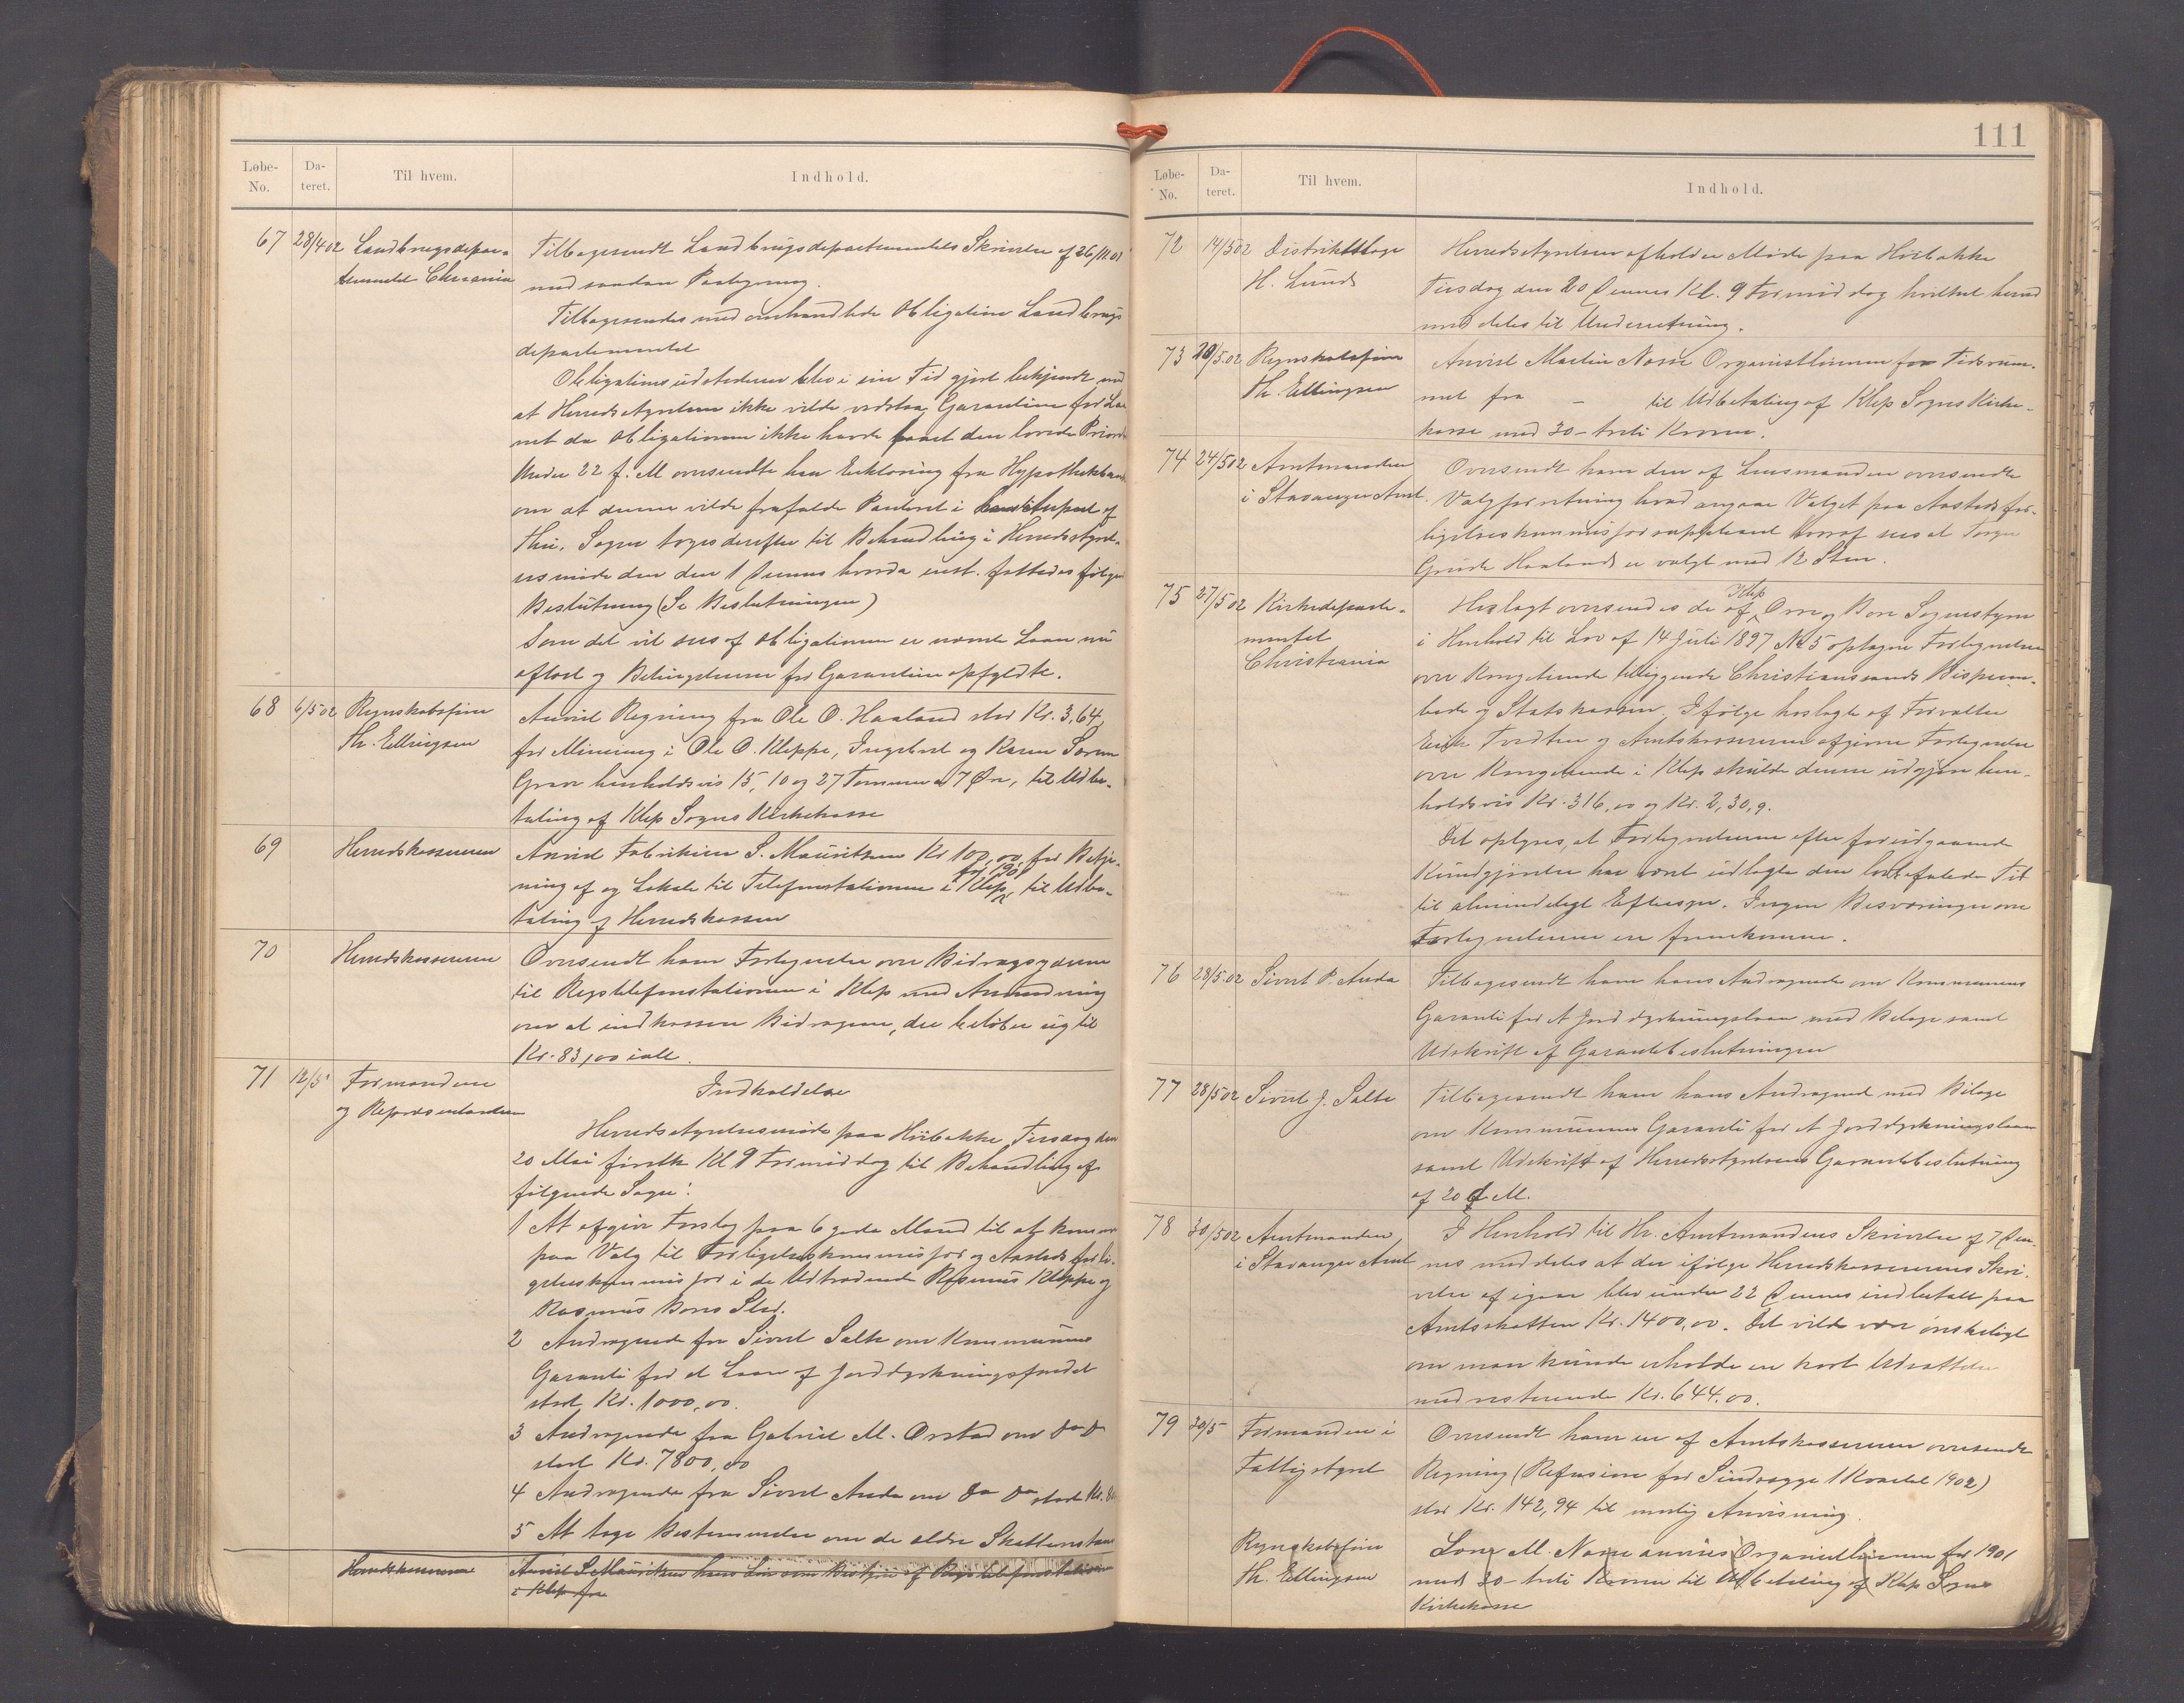 Løbe-No.
Da-teret.
Til hvem.
Indhold.
67 28/4 02 Landbrugsdepar-
tementet Chrania
Tilbagesendt Landbrugsdepartementets Skrivelse af 26/11 01
med saadan Paategning.
Tilbagesendes med omhandlede Obligation Landbrugs
departementet
Obligationsudstederen blev i sin Tid gjort bekjendt med
at Herredsstyrelsen ikke vilde vedstaa Garantien for Laa
net da Obligationen ikke havde faaet den lovede Priorit
Under 22 f. M oversendte han Erklæring fra Hypothekbank
om at denne vilde frafalde Panteret i
Thu. Sagen toges derefter til Behandling i Herredsstyrel-
sesmøde den den 1 dennes hvorda enst. fattedes følgen
Beslutning (Se Beslutningen)
Som det vil sees af Obligationen er nævnte Laan nu
aflæst og Betingelserne for Garantien opfyldte.
68 6/5 02 Regnskabsfører
Th. Ellingsen
Anvist Regning fra Ole O. Haaland stor Kr. 3,64,
for Minering i Ole O. Kleppe, Ingebret og Karen Sørum
Grav henholdsvis 15, 10 og 27 Tommer a 7 Øre, til Udbe-
taling af Klep Sogns Kirkekasse
69 Herredskassereren
Anvist Fabrikeier S. Mauritzen Kr 100,00 for Betje-
for 1901
ning af og Lokale til Telefonstationen i Klep, til Udbe-
taling af Herredskassen
70 Herredskassereren
Oversendt ham Fortegnelse over Bidragsyderne
til Rigstelefonstationen i Klep med Anmodning
om at indkassere Bidragene, der beløber sig til
Kr. 83,00 ialt.
71 12/5 Formændene
og Repræsentanterne
Indkaldelse
Herredsstyrelsesmøde paa Hübakke Tirsdag den
20 Mai førstk Kl 9 Formiddag til Behandling af
følgende Sager:
1 At afgive Forslag paa 6 gode Mænd til at komme
paa Valg til Forligelseskommissær og Aasteds forli-
gelseskommissær i de Udtrædende Rasmus Kleppe og
Rasmus Bores Sted.
2 Andragende fra Sivert Salte om Kommunens
Garanti for et Laan af Jorddyrkningsfondet
stort Kr. 1000,00.
3 Andragende fra Gabriel M. Orstad om Do Do
stort Kr. 7800,00
4 Andragende fra Sivert Anda om Do Do stort Kr.
5 At tage Bestemmelse om de ældre Skatterestan
Herredskassereren
Anvist S Mauritzen hans Løn som Bestyrer af Rigstelefonstationen
i Klep for
111
Løbe-No.
Da-teret.
Til hvem.
Indhold.
72 14/5 02 Distriktslæge
H. Lund
Herredsstyrelsen afholder Møde paa Hübakke
Tirsdag den 20 Dennes Kl. 9 Formiddag hvilket herved
meddeles til Underretning.
73 20/5.02 Regnskabsfører
Th. Ellingsen
Anvist Martin Næsse Organistlønnen for Tidsrum-
met fra – til Udbetaling af Klep Sogns Kirke-
kasse med 30 – treti Kroner.
74 24/5 02 Amtmanden
i Stavanger Amt.
Oversendt ham den af Lensmanden oversendte
Valgforretning hvad angaar Valget paa Aastedsfor-
ligelseskommissærsuppleant hvoraf sees at Torger
Grude Haaland er valgt med 12 Stem.
75 27/5 02 Kirkedeparte-
mentet
Christiania
Klep
Herlagt oversendes de af Orre og Bore Sognestyre
i Henhold til Lov af 14 Juli 1897 No 5 optagne Fortegnelser
over Kongetiende tilliggende Christianssands Bispeem-
bede og Statskassen. Ifølge hoslagte af Forvalter
Erik Tvedten og Amtskassereren afgivne Fortegnelse
over Kongetiende i Klep skulde denne udgjøre hen-
holdsvis Kr. 316,00 og Kr. 2,30,9.
Det oplyses, at Fortegnelserne efter forudgaaende
Kundgjørelse har været udlagte den lovbefalede Tid
til almindeligt Eftersyn. Ingen Besværinger over
Fortegnelserne er fremkomne.
76 28/5.02 Sivert P. Anda
Tilbagesendt ham hans Andragende om Kommunens
Garanti for et Jorddyrkningslaan med Bilage samt
Udskrift af Garantibeslutningen
77 28/5 02 Sivert J. Salte
Tilbagesendt ham hans Andragend med Bilage
om Kommunens Garanti for et Jorddyrkningslaan
samt Udskrift af Herredsstyrelsens Garantibeslutning
af 20 d. M.
78 30/5 02 Amtmanden
i Stavanger Amt
I Henhold til Hr. Amtmandens Skrivelse af 7 Den-
nes meddeles at der ifølge Herredskassererens Skri-
velse af igaar blev under 22 Dennes indbetalt paa
Amtsskatten Kr. 1400,00. Det vilde være ønskeligt
om man kunde erholde en kort Udsættelse
med resterende Kr. 644.00.
79 30/5 Formanden i
Fattigstyret
Oversendt ham en af Amtskassereren oversendt
Regning (Refusion for Sindssyge 1 Kvartal 1902)
stor Kr. 142,94 til mulig Anvisning.
Regnskabsfører
Th. Ellingsen
Lars M. Næsse anvises Organistlønnen for 1901
med 30 – treti Kroner til Udbetaling af Klep Sogns
Kirkekasse